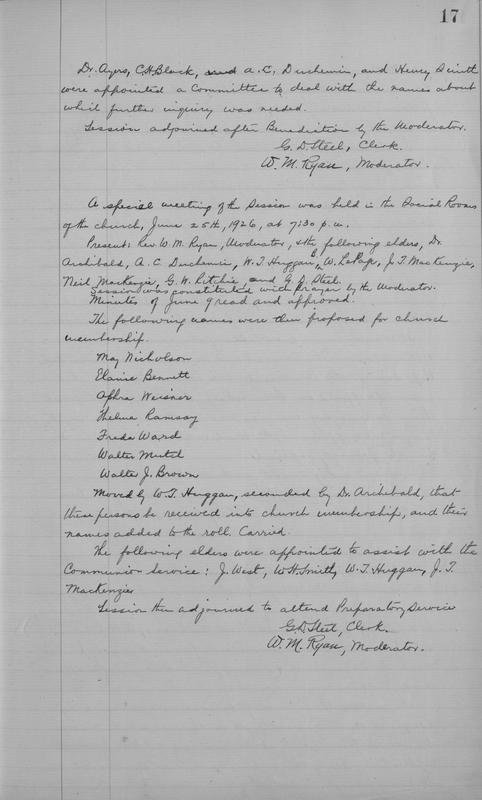 17
Dr. Ayers, C.H. Black, and A. C. Duchemin, and Henry Smith
were appointed a Committee to deal with the names about
which further inquiry was needed.
Session adjourned after Benediction by the Moderator.
G. D. Steel, Clerk.
W. M. Ryan, Moderator.
A special meeting of the Session was held in the Social Rooms
of the church, June 25th, 1926, at 7:30 p.m.
Present: Rev. W. M. Ryan, Moderator, & the following elders, Dr.
Archibald, A. C. Duchemin, W. T. Huggan, W. LePage, J. T. MacKenzie,
Neil MacKenzie, G. W. Ritchie and G. D. Steel.
Session was constituted with prayer by the Moderator.
Minutes of June 9 read and approved.
The following names were then proposed for church
membership.
May Nicholson
Elaine Bennett
Aphra Weisner
Thelma Ramsay
Freda Ward
Walter Mutch
Walter J. Brown
Moved by W. T. Huggan, seconded by Dr. Archibald, that
these persons be received into church membership, and their
names added to the roll. Carried.
The following elders were appointed to assist with the
Communion Service: J. West, W. H. Smith, W. T. Huggan, J. T.
MacKenzie
Session then adjourned to attend Preparatory Service
G. D. Steel, Clerk.
W. M. Ryan, Moderator.